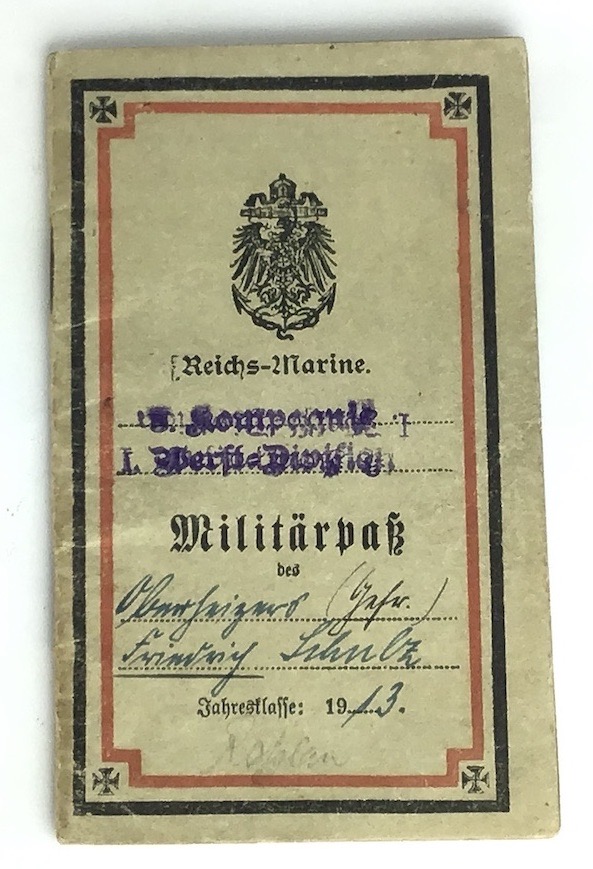 Reichs-Marine.
Kompagnie
I. Werft-Division
Militärpaß
des
Oberheizers (Gefr.)
Friedrich Schulz
Jahresklasse: 1913.